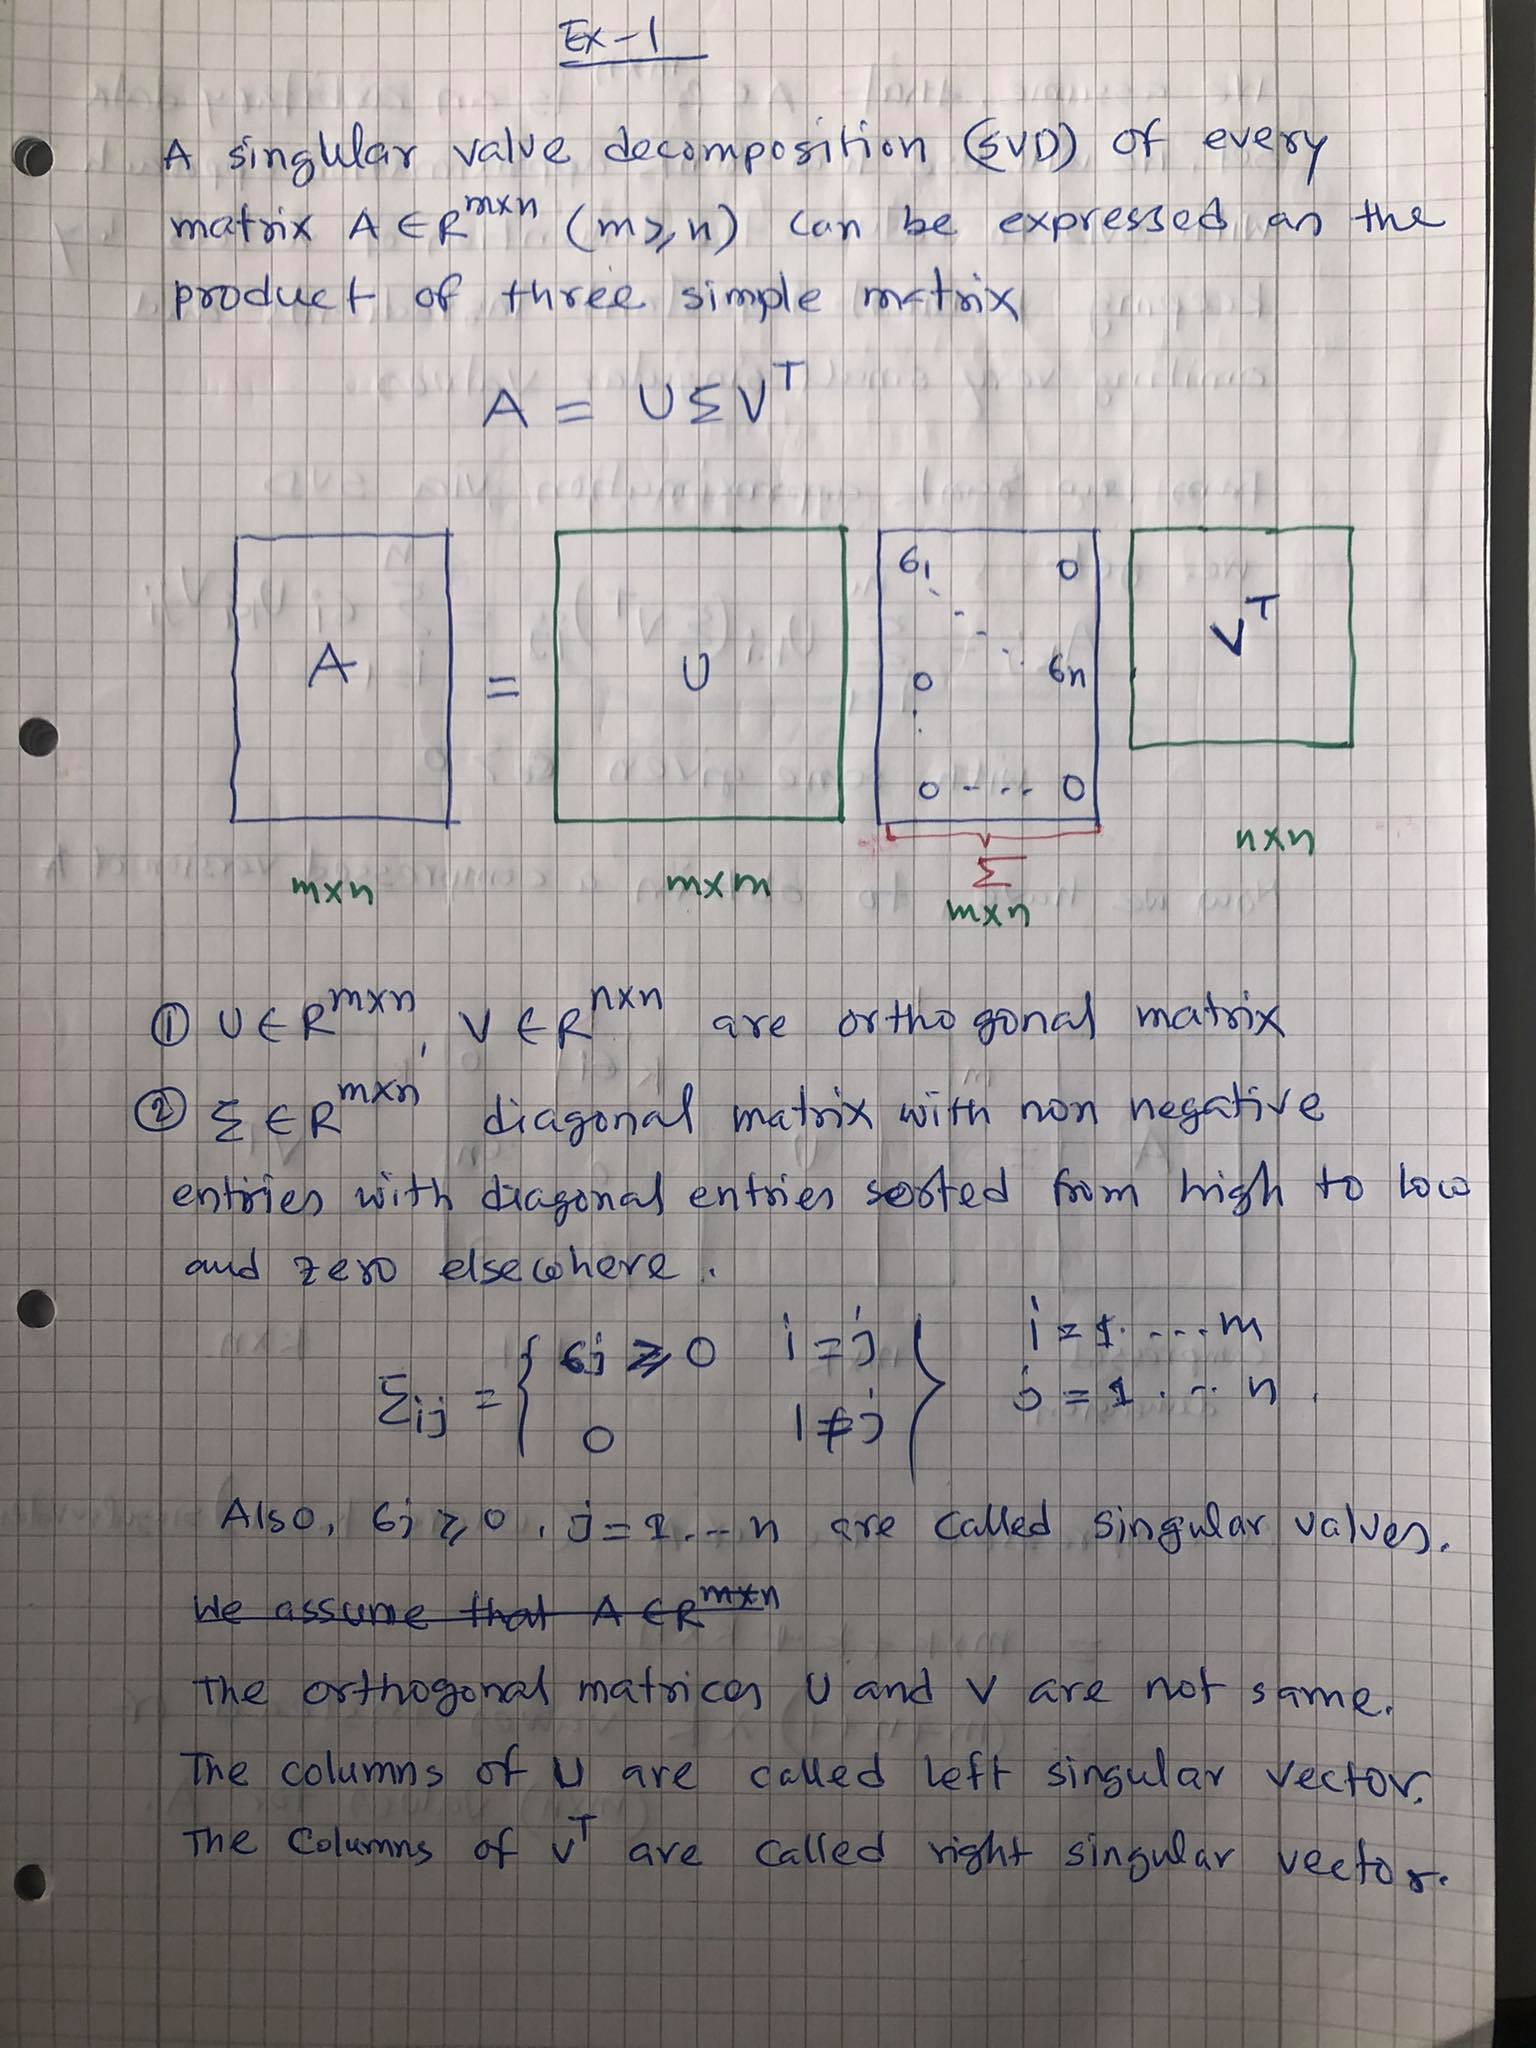 Ex-1
A singular value decomposition (SVD) of every
matrix A ∈ R^{m×n} (m ≥ n) can be expressed as the
product of three simple matrix
A = UΣV^T
A = U σ₁ 0 V^T
0 σₙ
0 ... 0
m×n m×m Σ m×n n×n
① U ∈ R^{m×n}, V ∈ R^{n×n} are orthogonal matrix
② Σ ∈ R^{m×n} diagonal matrix with non negative
entries with diagonal entries sorted from high to low
and zero elsewhere.
Σij = { σj ≥ 0 i = j } i = 1....m
0 i ≠ j j = 1... n.
Also, σj ≥ 0, j = 1...n are called singular values.
We assume that A ∈ R^{m×n}
The orthogonal matrices U and V are not same.
The columns of U are called left singular vector.
The Columns of V^T are called right singular vector.